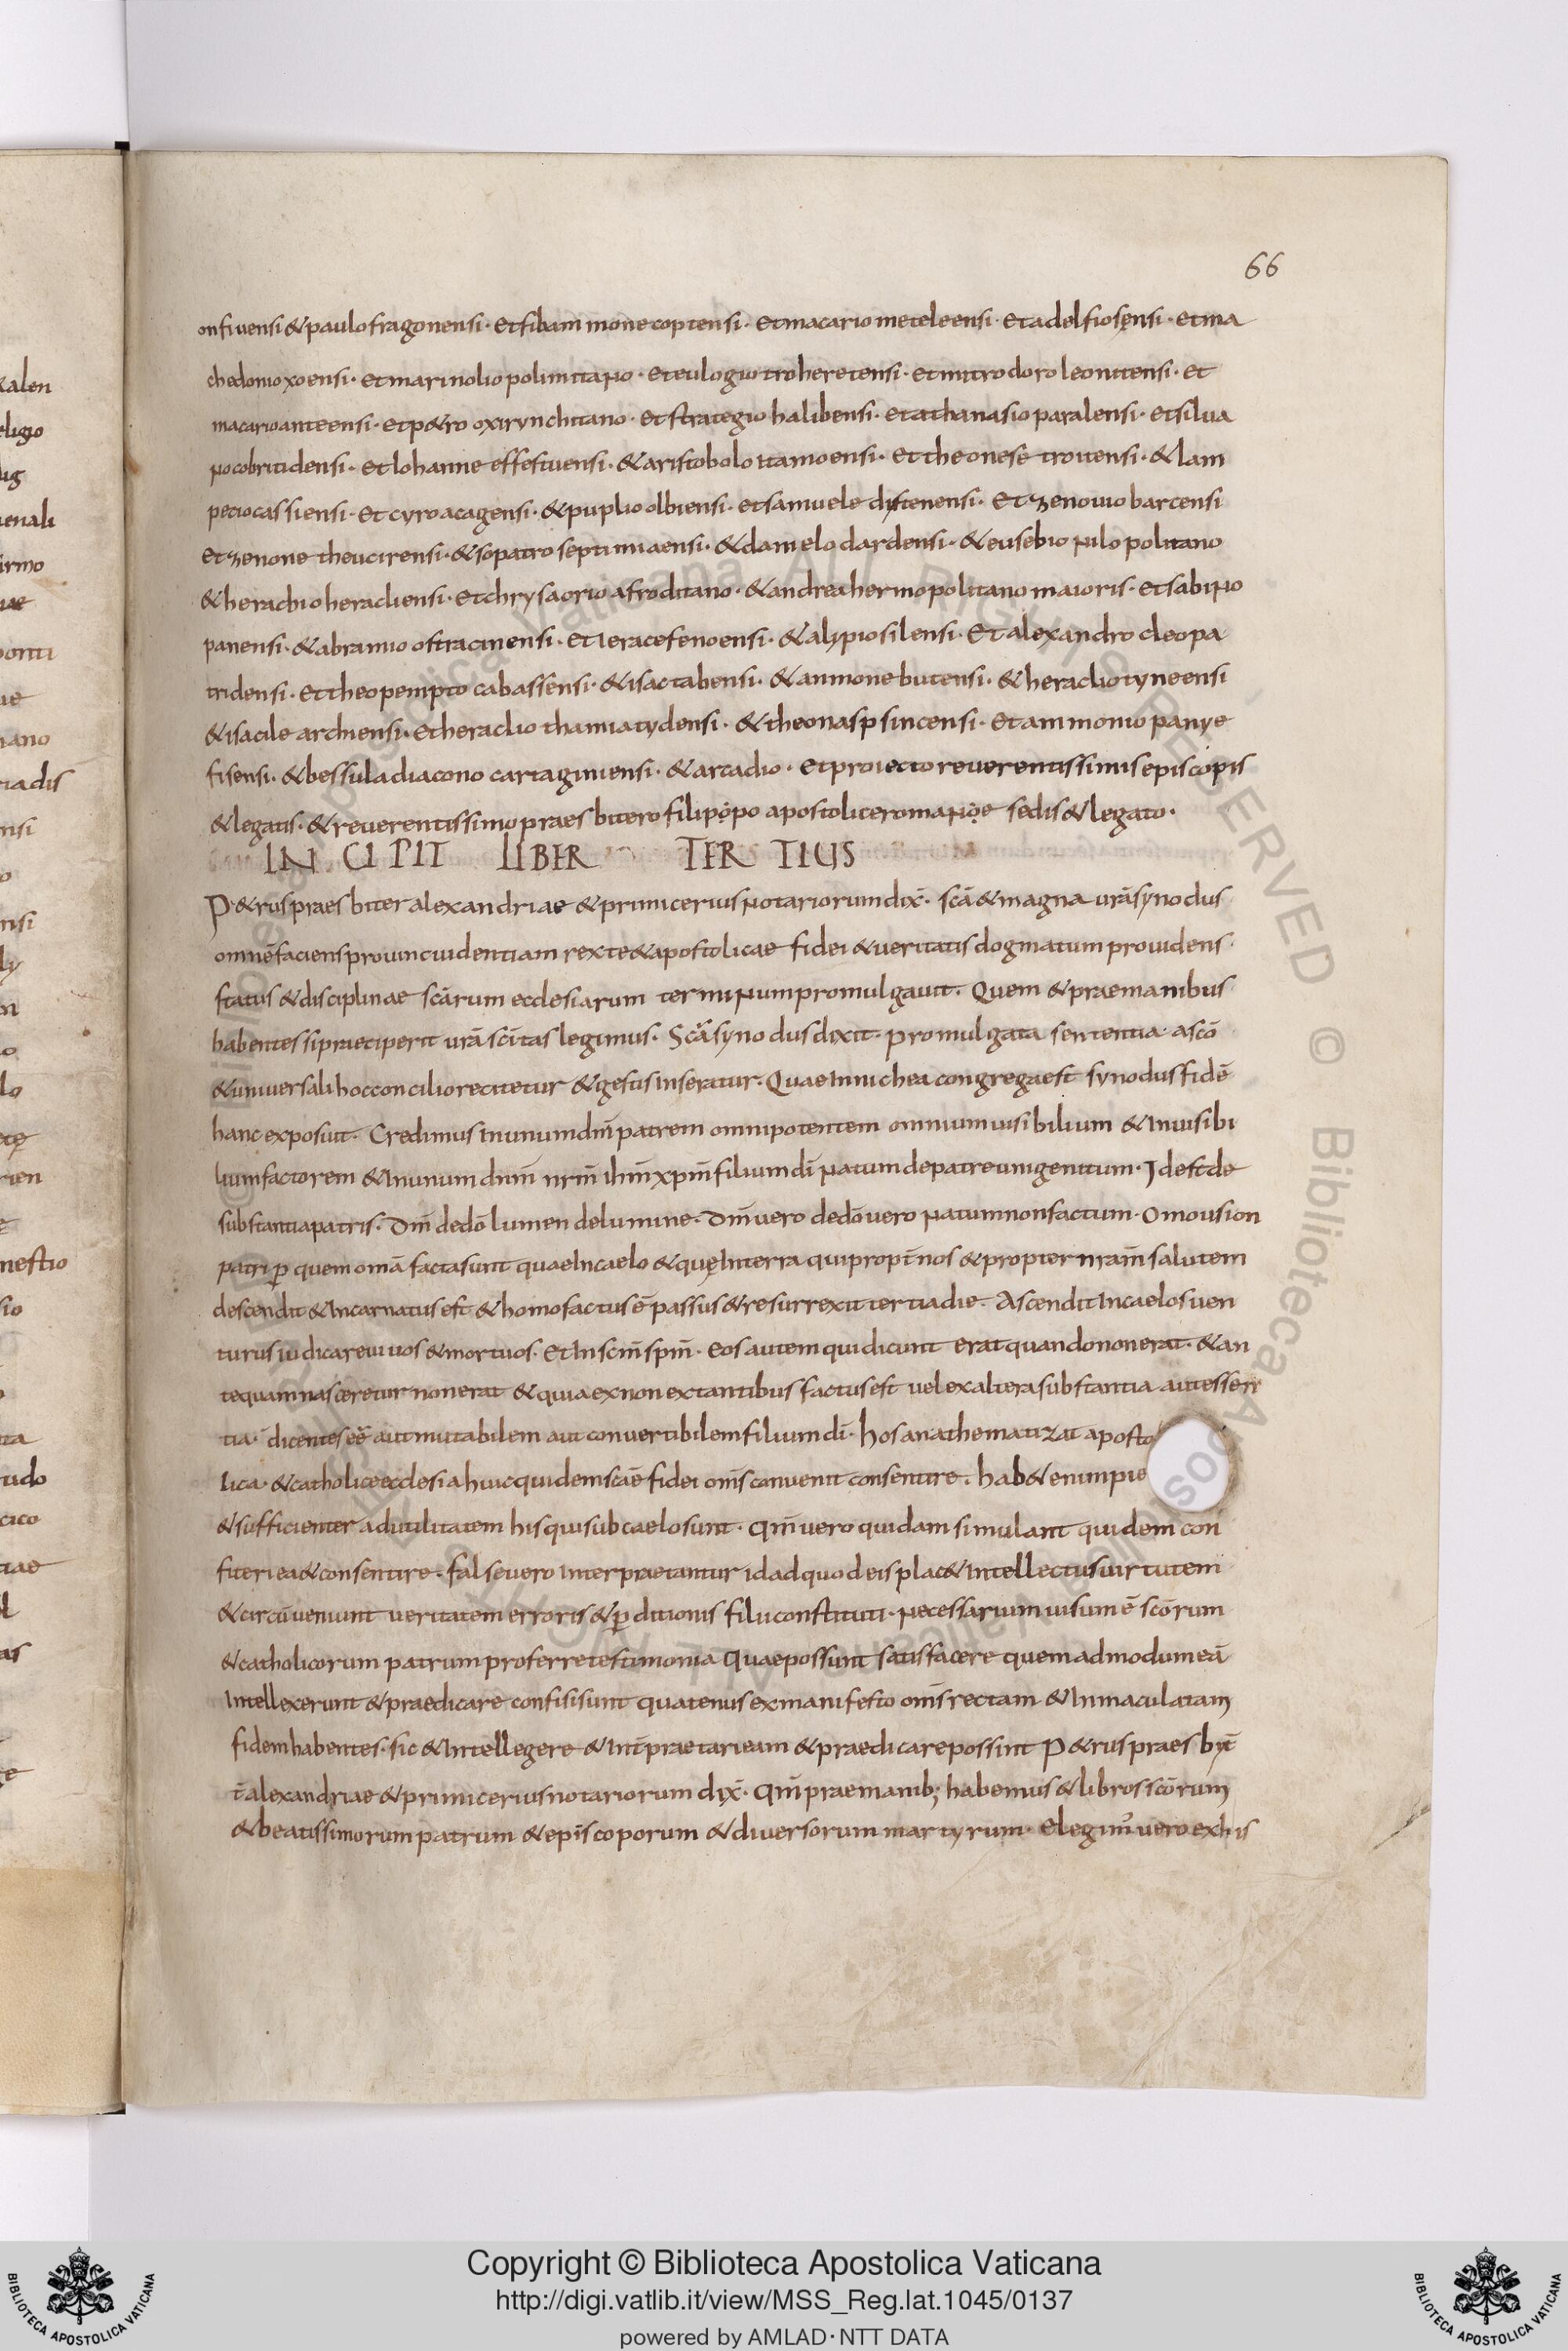 66
onfiuensi & paulo fragonensi · Et fibammone coptensi · Et macario meteleensi · Et adelfio sęnsi · et ma
chedonio xoensi · et marino liopolimitano · et eulogio troheretensi · et mitrodoro leonitensi · et
macario anteensi · et p&ro oxirynchitano · et strategio halibensi · et athanasio paralensi · et silua
no cobritidensi · et Iohanne effestuensi · & aristobolo ttamoensi · et theone setroitensi · & lam
pecio cassiensi · et cyro acagensi · & puplio olbiensi · et samuele distenensi · et zenouio barcensi
et zenone theucirensi · & sopatro septimiaensi · & danielo dardensi · & eusebio nilopolitano
& heraclio heracliensi · et chrysaorio afroditano · & andrea hermopolitano maioris · et sabino
panensi · & abramio ostracinensi · et Ierace fenoensi · & alypio silensi · et alexandro cleopa
tridensi · et theopempto cabassensi · & isac tabensi · & ammone butensi · & heraclio tyneensi
& isacile archiensi · et heraclio thamiatydensi · & theonas psincensi · et ammonio panye
fisensi · & bessula diacono cartaginiensi · & arcadio · et proiecto reuerentissimis episcopis
& legatis · & reuerentissimo praesbitero filippo apostolice romanae sedis & legato ·
IN CIPIT LIBER TER TIUS
P&rus praesbiter alexandriae & primicerius notariorum dix̄ · scā & magna urā synodus
omnē faciens prouincuidentiam recte & apostolicae fidei & ueritatis dogmatum prouidens
status & disciplinae scārum ecclesiarum terminum promulgauit · Quem & prae manibus
habentes si praeciperit urā scītas legimus · Scā synodus dixit · promulgata sententia ascō
& uniuersali hoc concilio recitetur & gestis inseratur · Quae In nichea congregaest synodus fidē
hanc exposuit · Credimus In unum dm̄ patrem omnipotentem omnium uisibilium & Inuisibi
lium factorem & In unum dnm̄ nrm̄ ihm̄ xpm̄ filium dī natum de patre unigenitum · Id est de
substantia patris · Dm̄ de dō lumen de lumine · Dm̄ uero de dō uero natum non factum · Omousion
patri p̄ quem omā facta sunt quae In caelo & quę In terra qui propt̄ nos & propter nram̄ salutem
descendit & Incarnatus est & homo factus ē passus & resurrexit tertia die · Ascendit In caelos uen
turus iudicare uiuos & mortuos · Et In scm̄ spm̄ · Eos autem qui dicunt erat quando non erat · & an
tequam nasceretur non erat & quia ex non extantibus factus est uel ex altera substantia aut essen
tia · dicentes eē aut mutabilem aut conuertibilem filium dī · hos anathematizat aposto
lica · & catholice ecclesia huic quidem scāe fidei oms̄ conuenit consentire · hab& enim pie
& sufficienter ad utilitatem his qui sub caelo sunt · Qm̄ uero quidam simulant quidem con
fiteri ea & consentire · false uero interpraetantur id ad quod eis plac& Intellectus uirtutem
& circūueniunt ueritatem erroris & p̄ditionis filii constituti · necessarium uisum ē scōrum
& catholicorum patrum proferre testimonia Quae possunt satisfacere quemadmodum eā
Intellexerunt & praedicare confisi sunt quatenus ex manifesto oms̄ rectam & Inmaculatam
fidem habentes · sic & Intellegere & Int̄praetari eam & praedicare possint P&rus praesbyt̄
t̄ alexandriae & primicerius notariorum dix̄ · Qm̄ prae manib; habemus & libros scōrum
& beatissimorum patrum & episcoporum & diuersorum martyrum · Elegim̉ uero ex his
Copyright © Biblioteca Apostolica Vaticana
http://digi.vatlib.it/view/MSS_Reg.lat.1045/0137
powered by AMLAD·NTT DATA
BIBLIOTECA APOSTOLICA VATICANA
BIBLIOTECA APOSTOLICA VATICANA